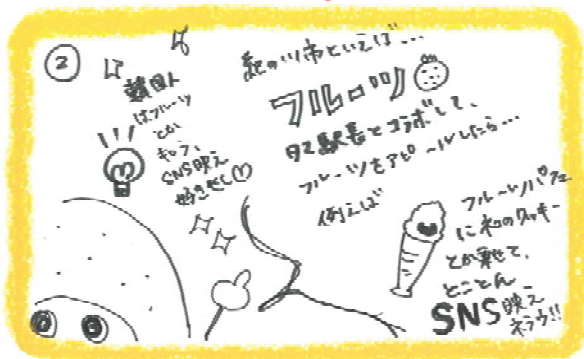 ②
韓国人
はフルーツ
とか
キレイ、
SNS映え
好きやし
紀の川市といえば…
フルーツ
タマ駅長とコラボして、
フルーツをアピールしたら…
例えば
フルーツパフェ
にネコのクッキー
とか乗せて、
とことん
SNS映え
ネラウ!!